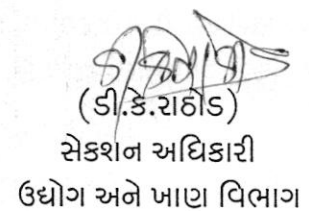 (ડી.કે.રાઠોડ)
સેકશન અધિકારી
ઉદ્યોગ અને ખાણ વિભાગ